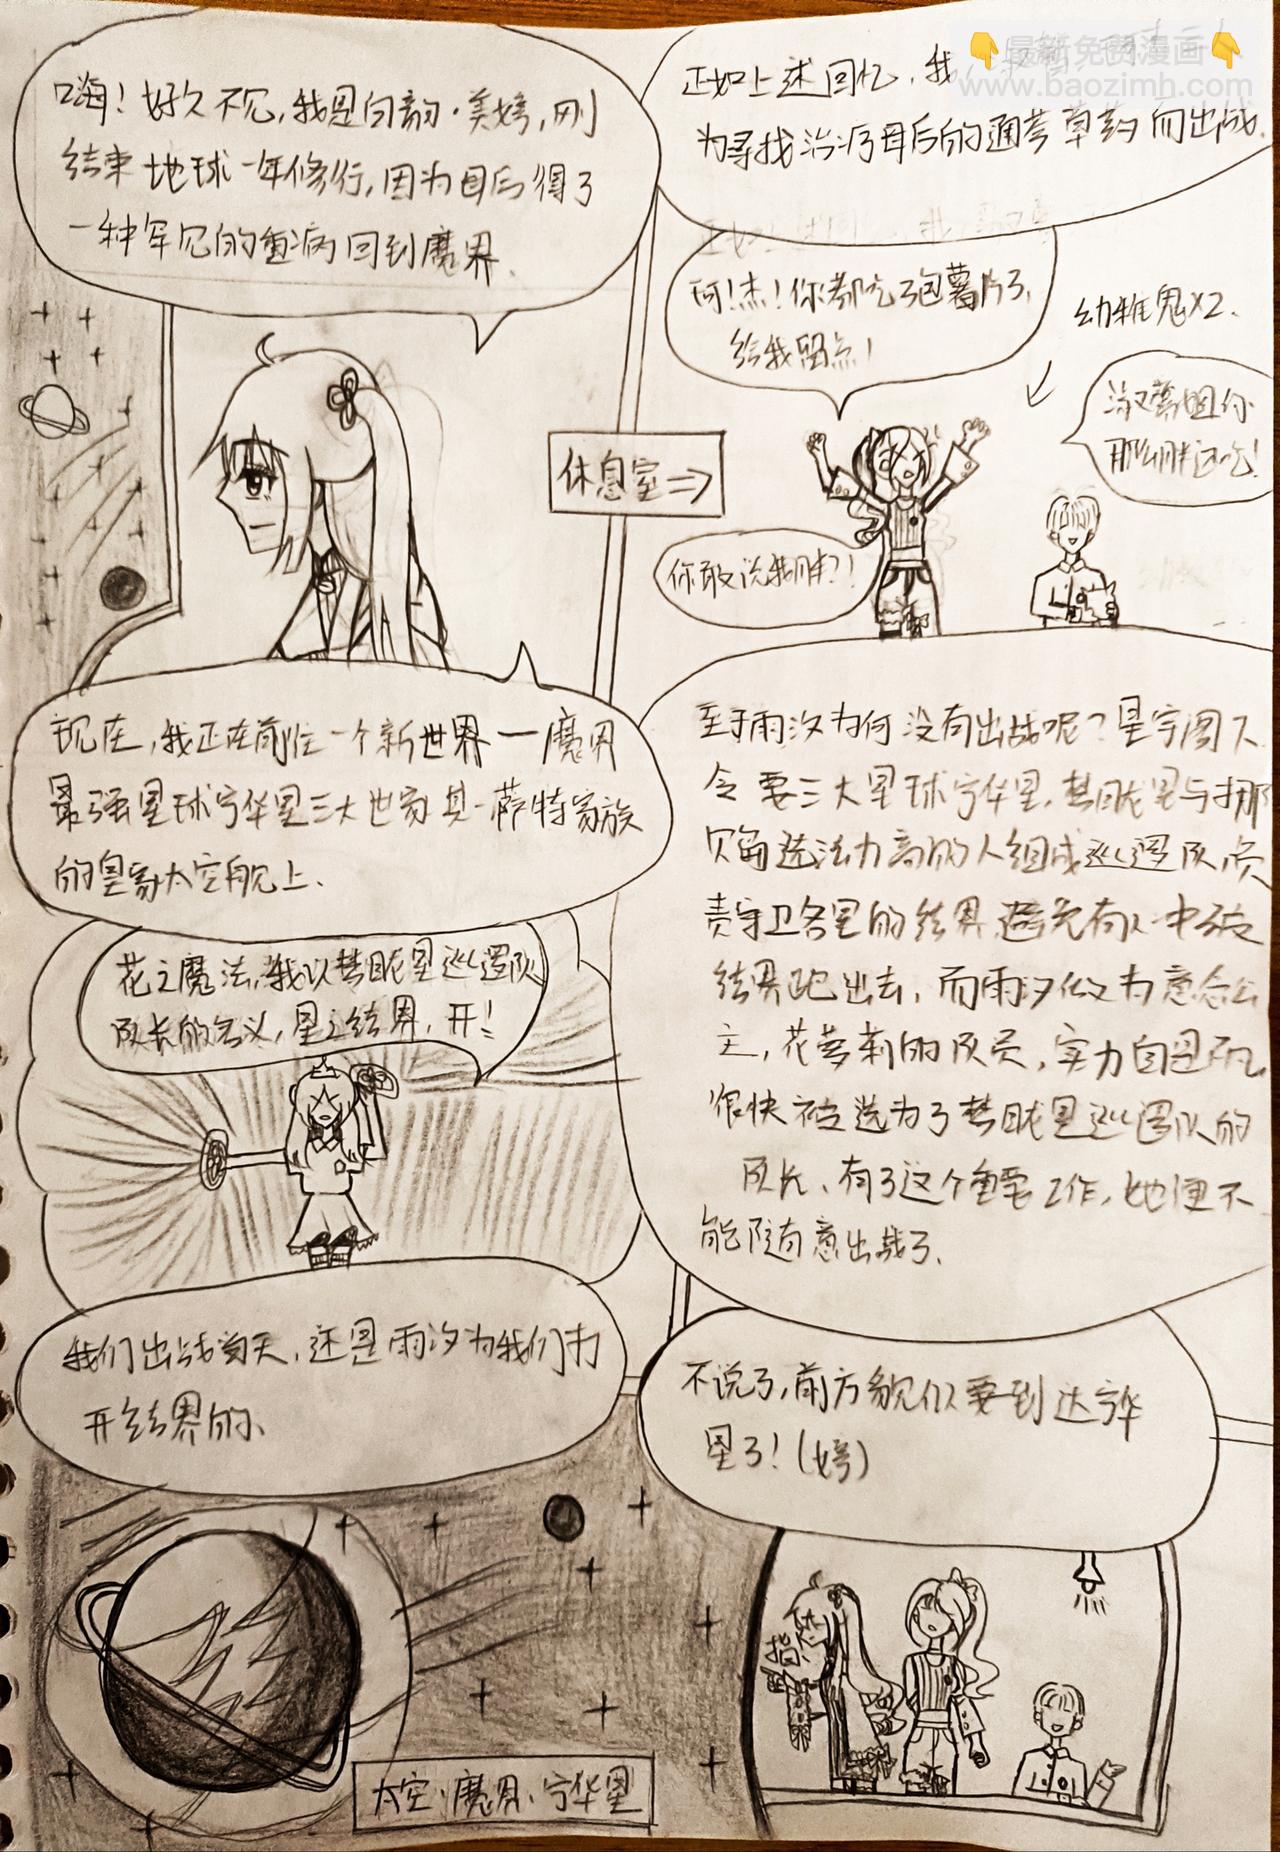 嗨！好久不见，我是白韵·美婷，刚
结束地球一年修行，因为母后得了
一种罕见的重病回到魔界、
现在，我正在前往一个新世界一魔界
最强星球宁华星三大世家其一萨特家族
的皇家太空舰上、
花之魔法，我以梦眬星巡逻队
队长的名义，星之结界，开！
我们出战当天，还是雨汐为我们打
开结界的、
太空、魔界、宁华星
最新免費漫画
www.baozimh.com
正如上述回忆，我
为寻找治疗母后的通梦草药而出战、
阿！杰！你都吃了包薯片了，
给我留点！
幼稚鬼X2、
休息室⇒
汐梦姐你
那么胖还吃！
你敢说我胖？！
至于雨汐为何没有出战呢？星宇阁下
令要三大星球宁华星，梦眬星与挪
选法力高的人组成巡逻队负
责守卫各星的结界，避免有人冲破
结界跑出去，而雨汐作为意念公
主，花萝莉的队员，实力自是不凡
很快被选为了梦眬星巡逻队的
队长、有了这个重要工作，她便不
能随意出战了、
不说了，前方貌似要到达宁华
星了！(婷)
指、